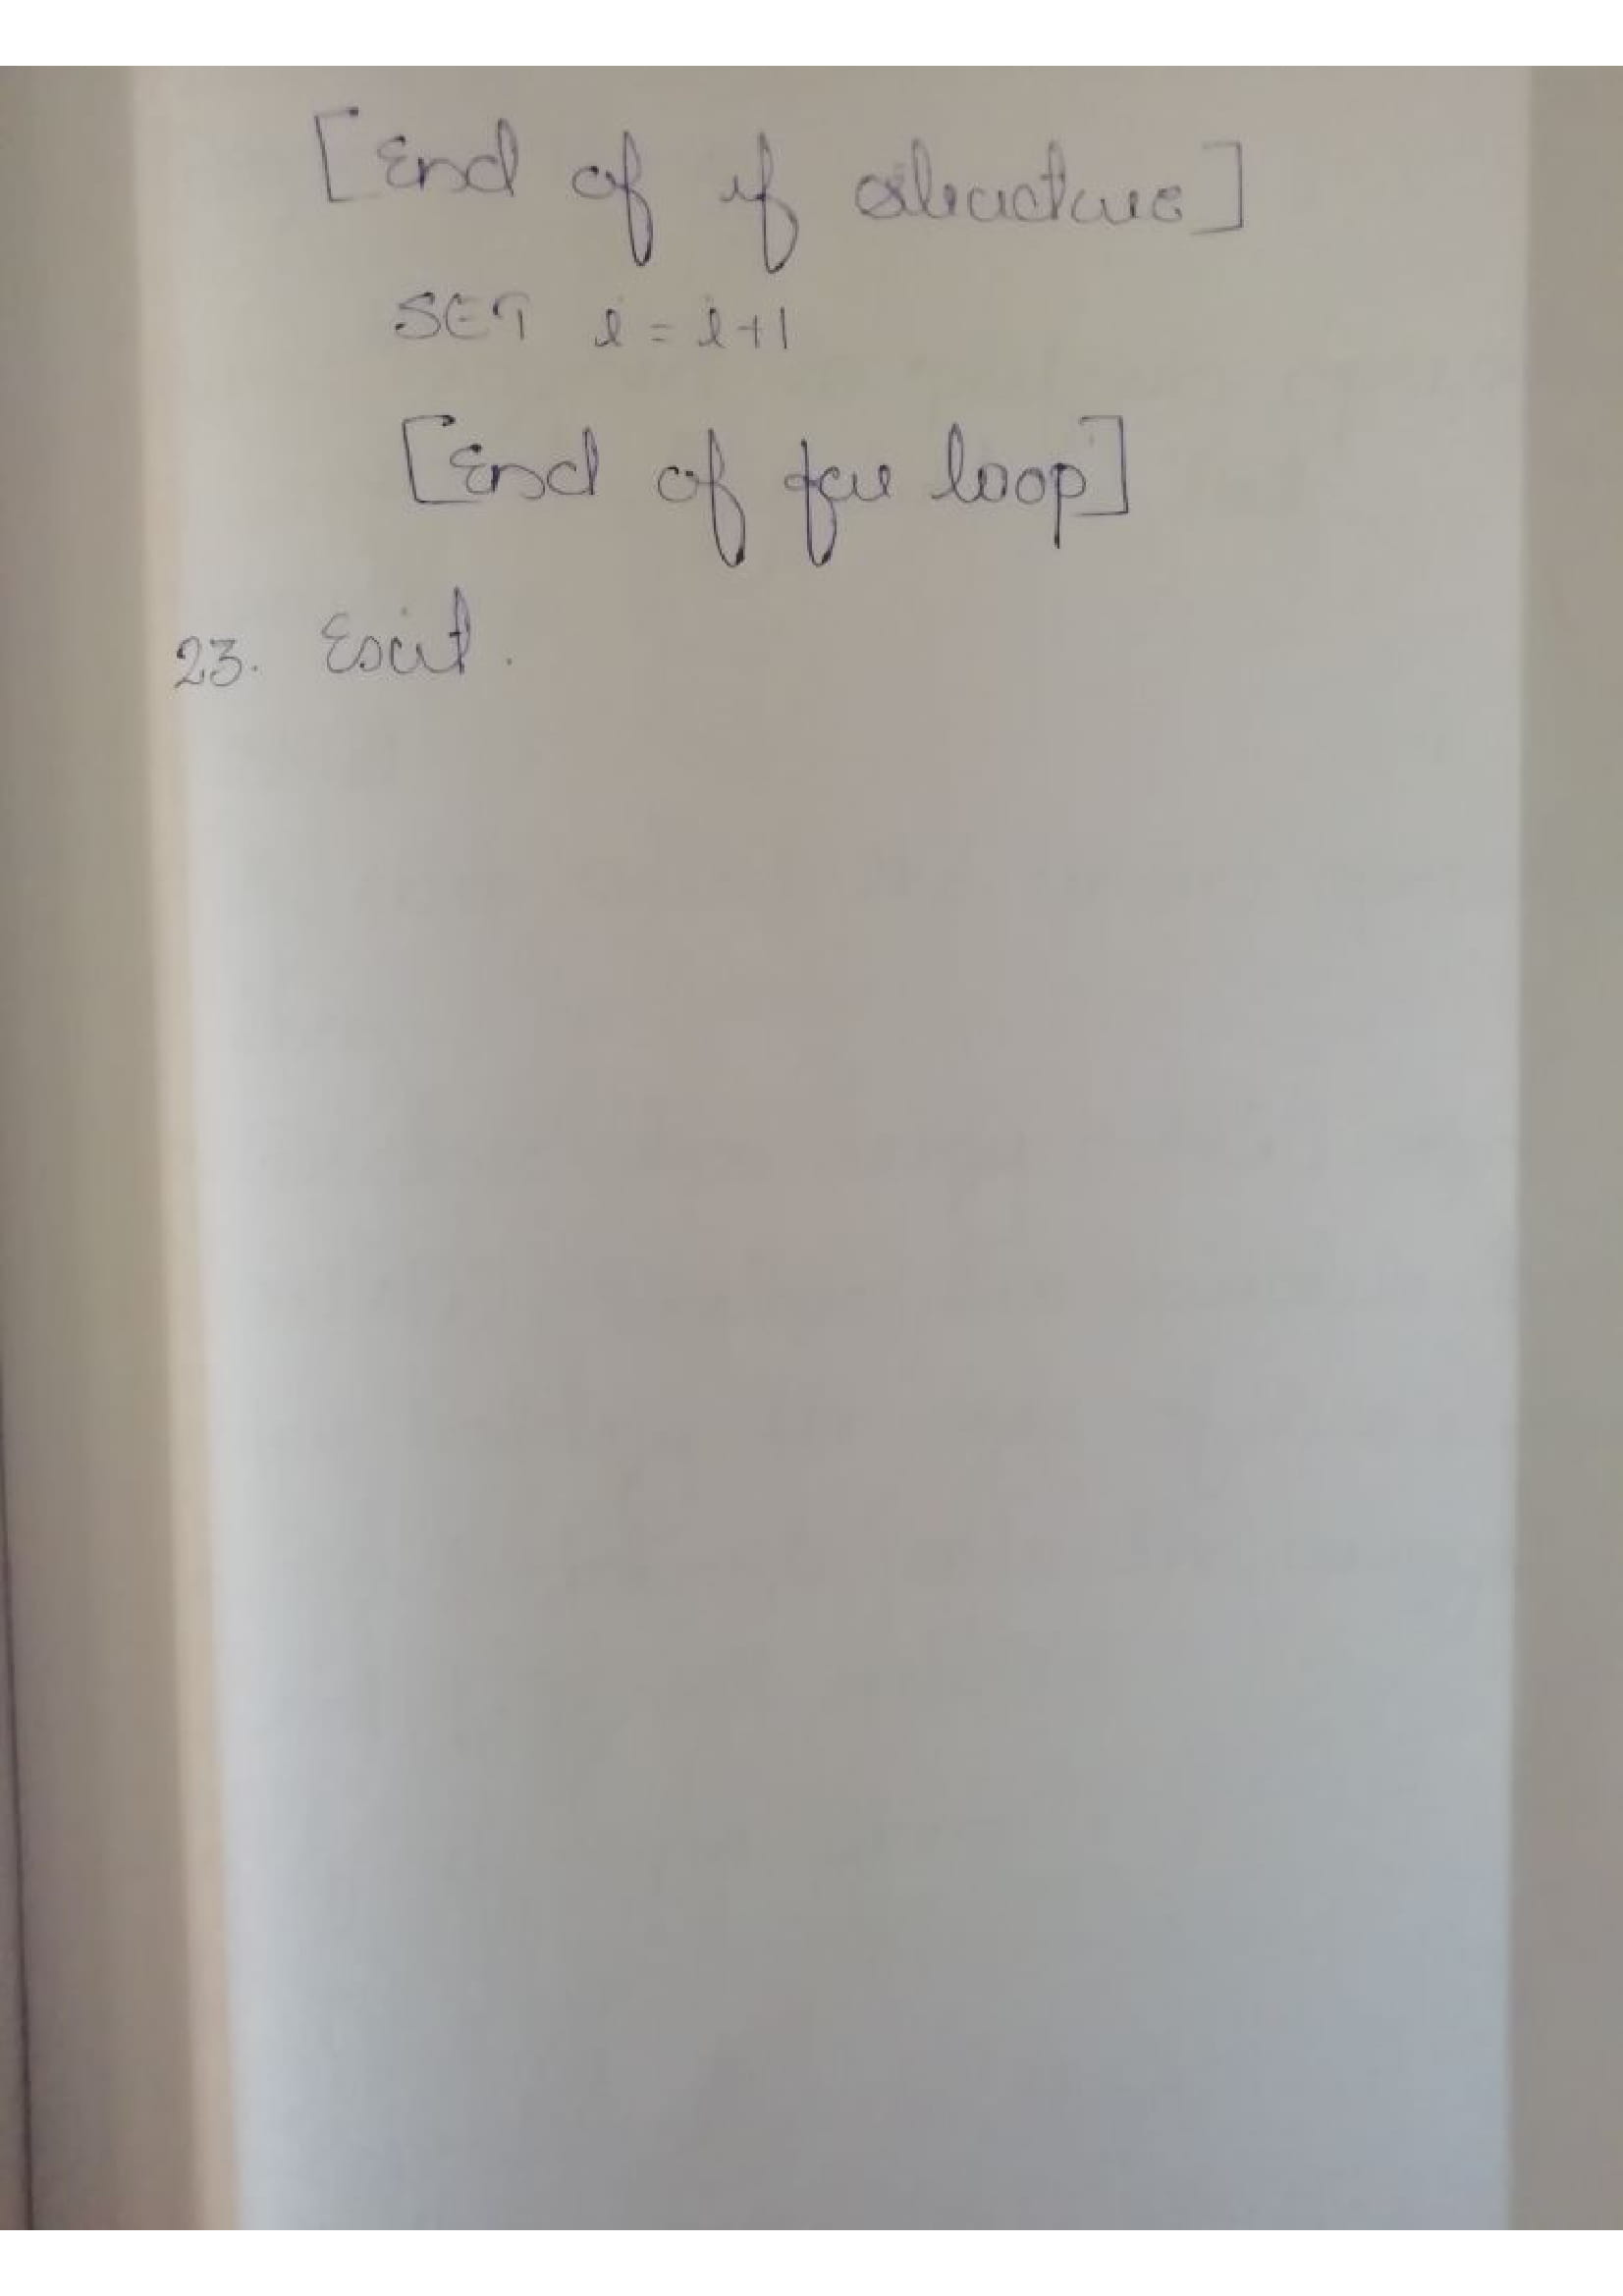 [End of if structure]
SET i = i+1
[End of for loop]
23. Exit.